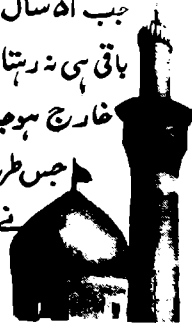 جب ۵۱ سال
باقی ہی نہ رہتا
خارج ہوجـ
جس طر
نے